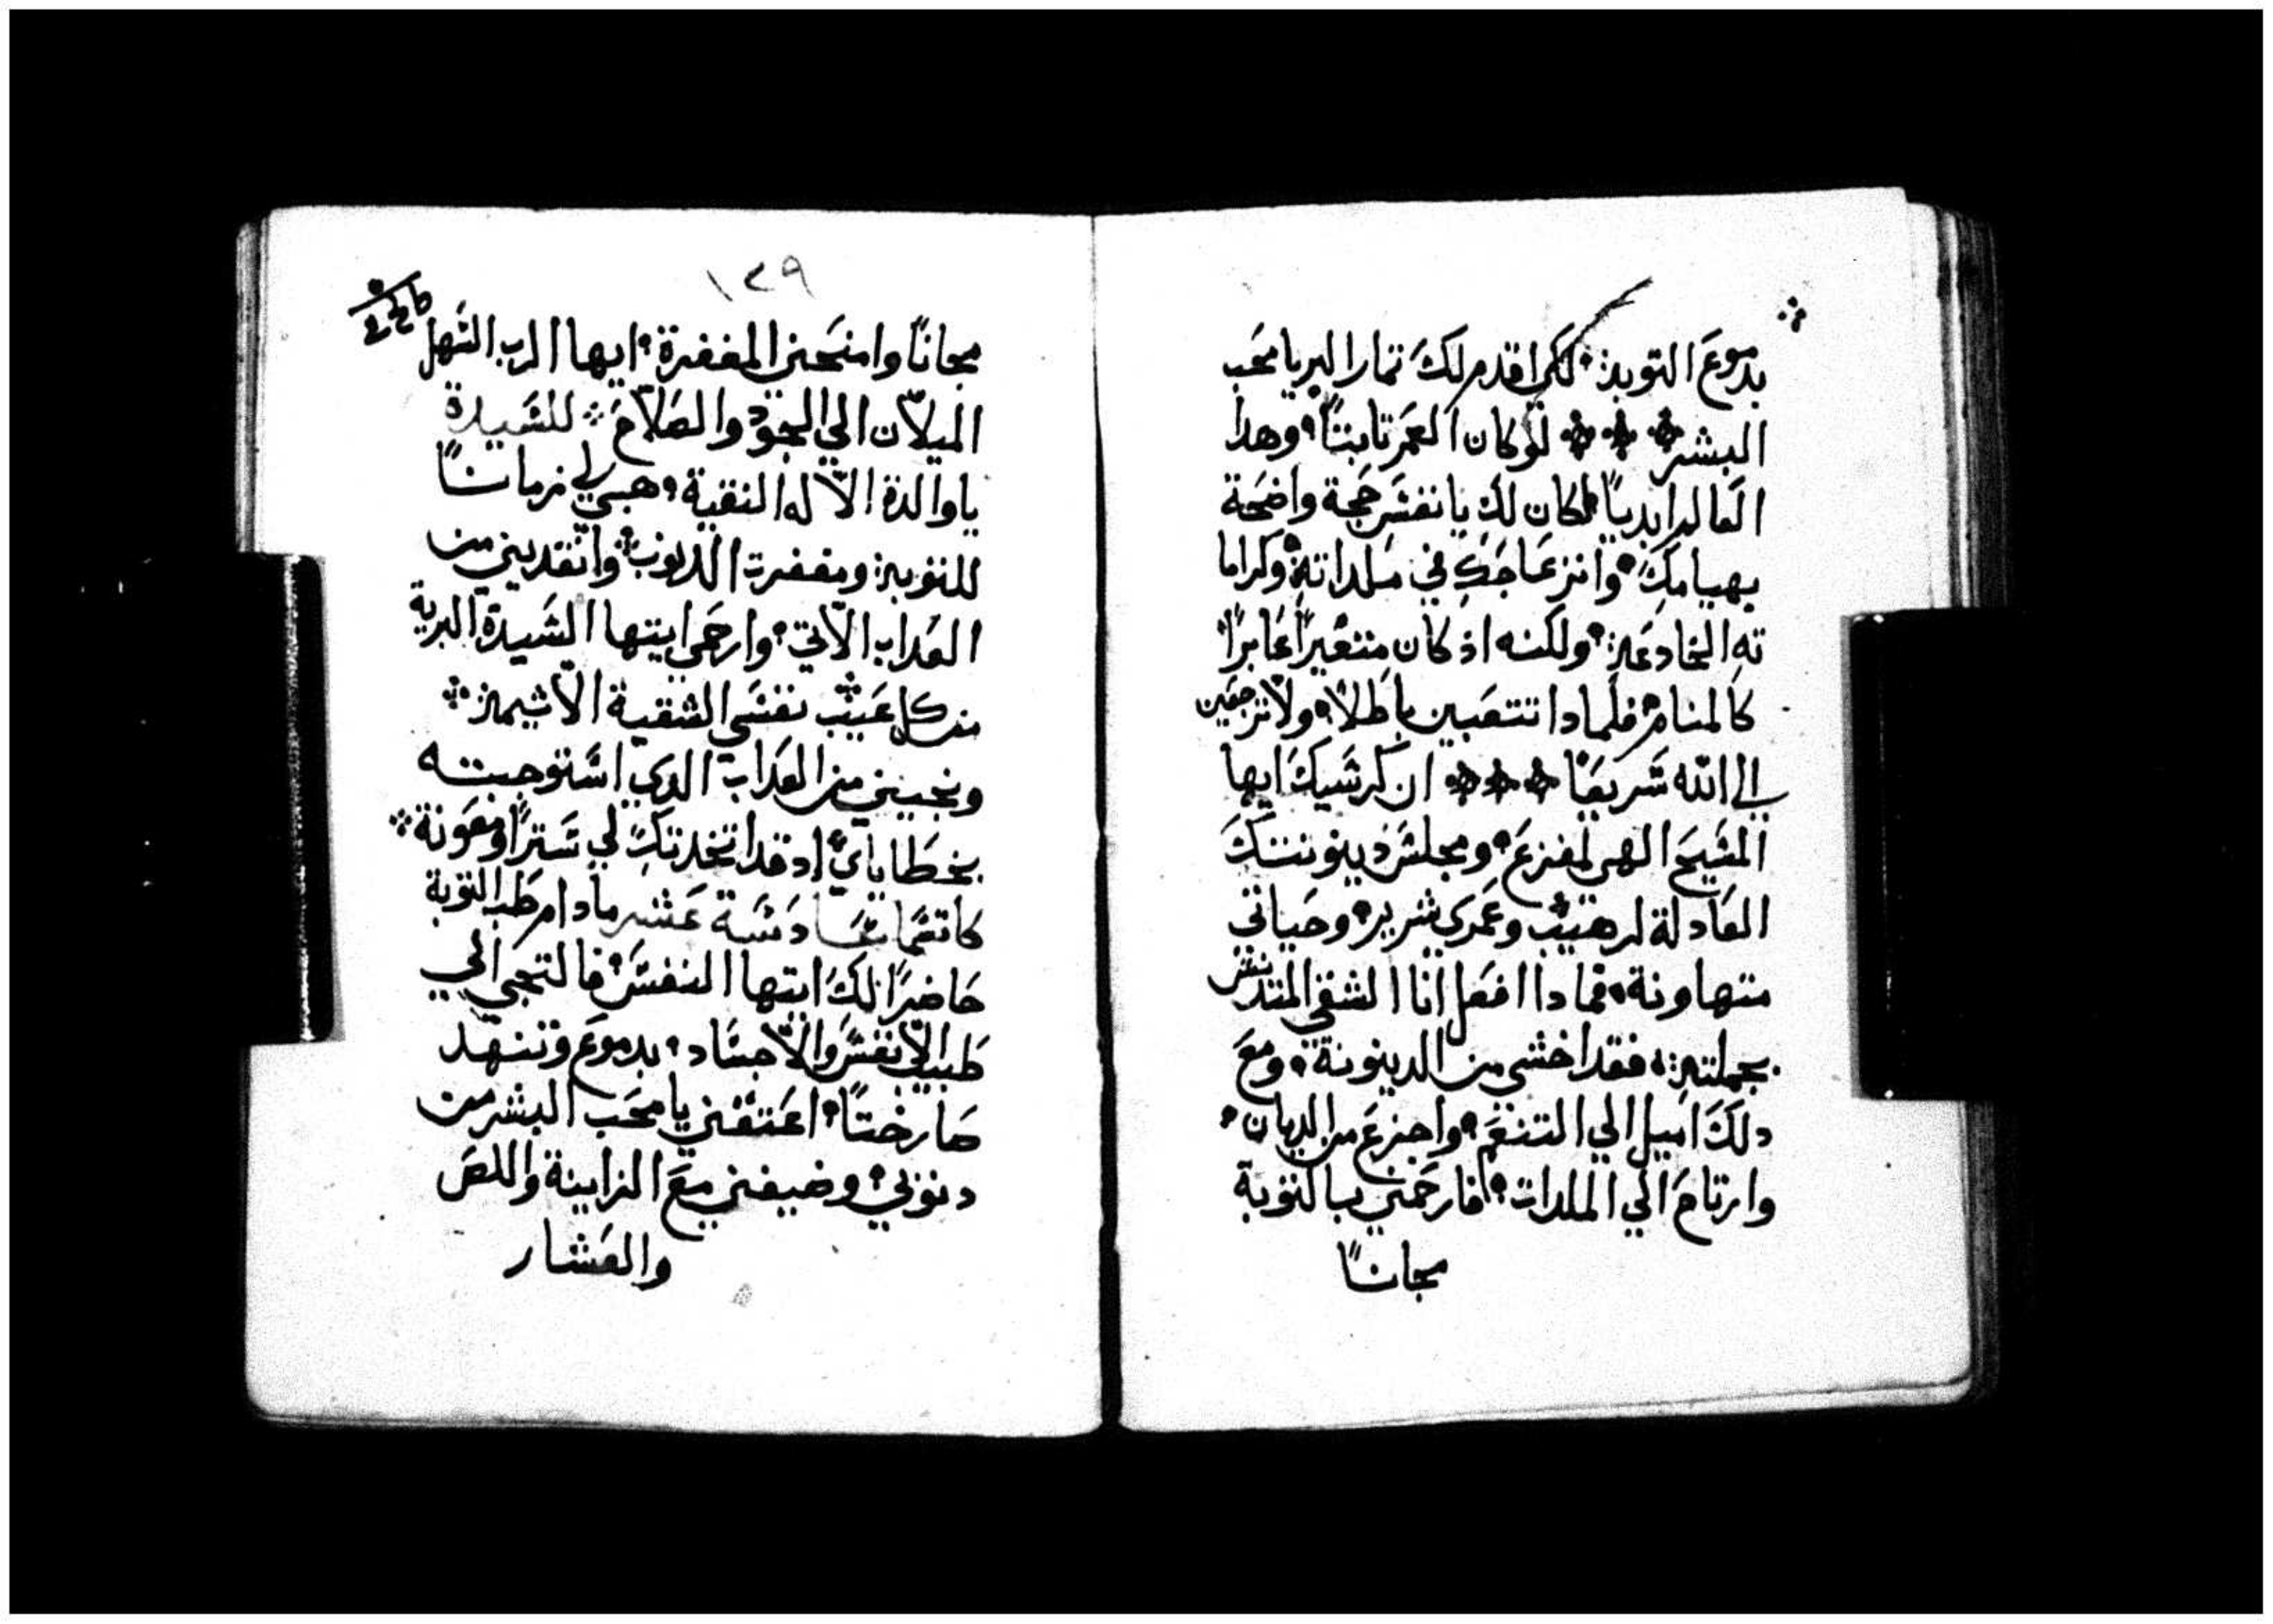 بدموع التوبة لكي اقدم لك تمارا البريا محب
البشر لو كان العمر تابتاً وهدا
العالم ابدياً لكان لك يا نفس حجة واضحة
بهيامك وانزعاجك في ملداته وكراما
ته الخادعة ولكنه اذ كان متغيراً عابراً
كالمنام فلمادا تتعبين باطلاً ولا ترجعين
الي الله سريعاً ان كرسيك ايها
المسيح الهي لمفزع ومجلس دينونتك
العادلة لرهيب وعمري شرير وحياتي
متهاونة فمادا افعل انا الشقي المتدنس
بجملته فقد اخشي من الدينونة ومع
دلك اميل الي التنعم واجزع من الديان
وارتاح الي الملدات فارحمني بالتوبة
مجاناً
١٢٩
مجاناً وامنحني المغفرة ايها الرب السهل
الميلان الي الجود والصلاح للسيدة
يا والدة الاله النقية هبي لي زماناً
للتوبة ومغفرت الدنوب وانقديني من
العداب الاتي وارحمي ايتها السيدة البرية
من كل عيب نفسي الشقية الاتيمة
ونجيني من العداب الدي استوجبته
بخطاياي اد قد اتخدتك لي ستراً ومعونة
كاتسما سادسة عشر مادام طب التوبة
حاضراً لك ايتها النفس فالتجي الي
طبيب الانفس والاجساد بدموع وتنهد
صارختاً اعتقني يا محب البشر من
دنوبي وضيفني مع الزانية واللص
والعشار